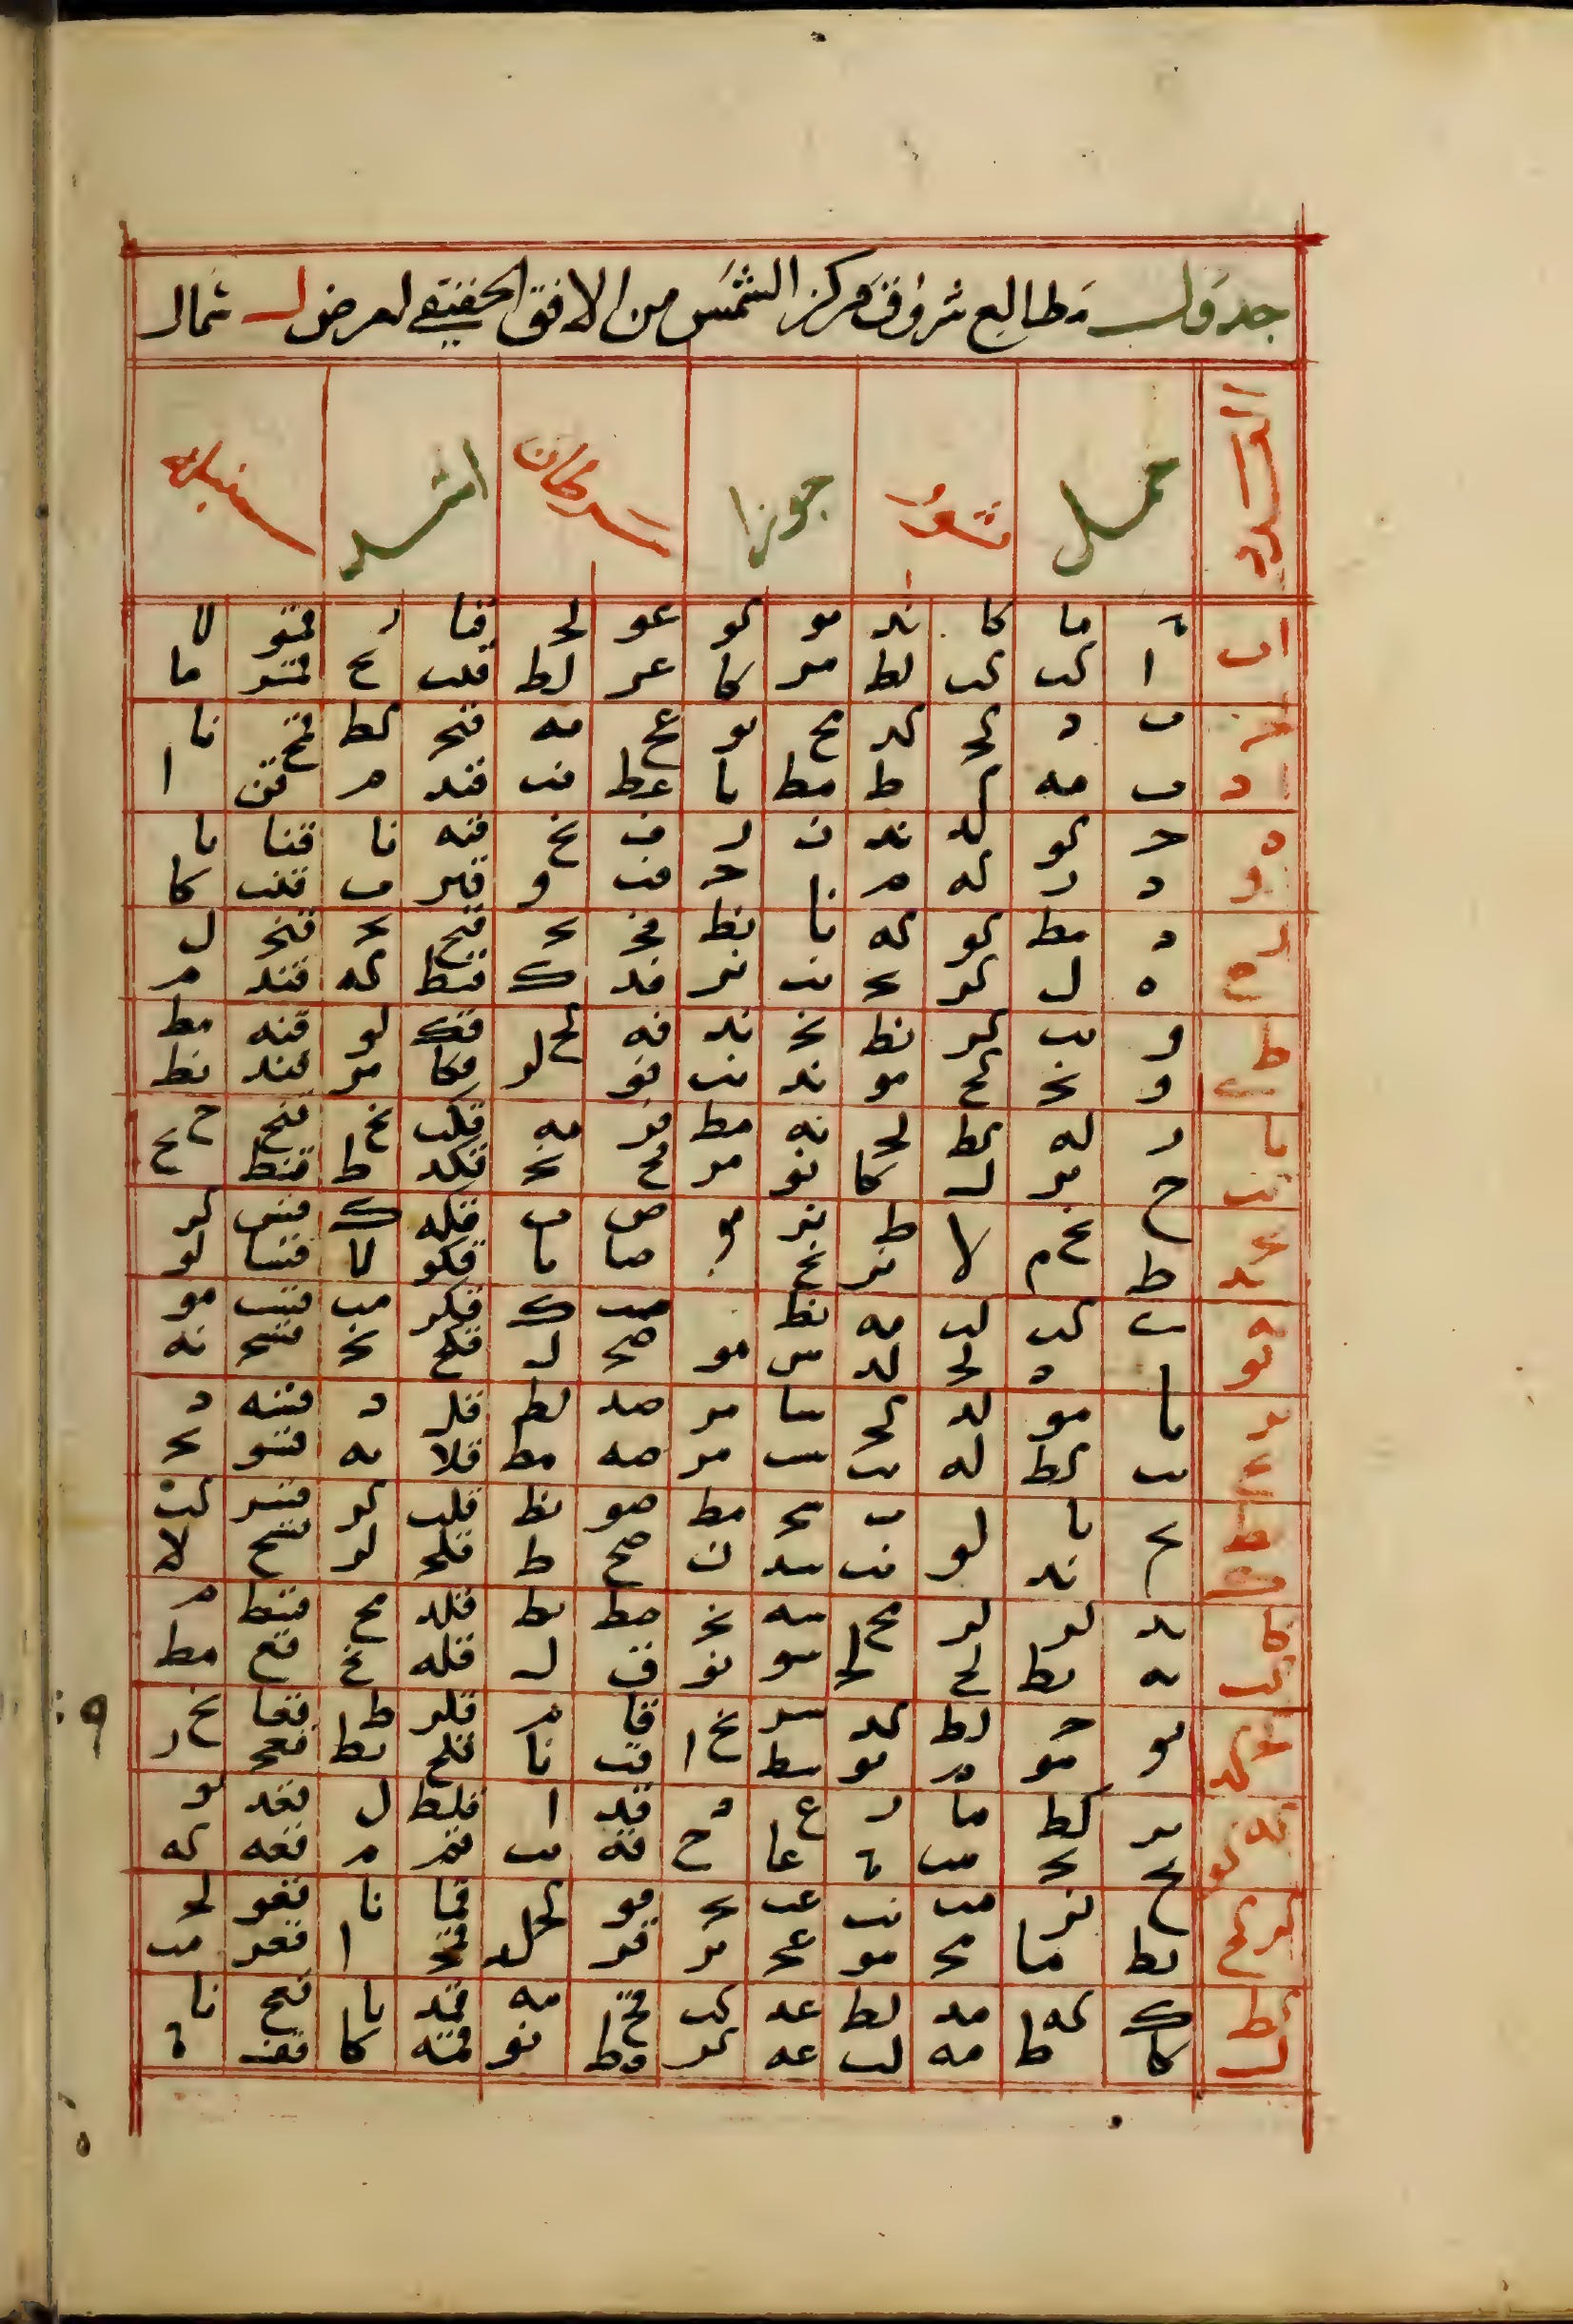 جدول مطالع شروق مركز الشمس من الافق الحقيقي لعرض ل شمال
العدد حمل ثور جوزا سرطان اسد سنبله
ا ٠ ما كا ند مو كو عو لح قيا ر قمو لا
ب ا كب كب لط مر كا عر لط قيب ح قمر ما
ج ب د كح كد مح يو عح مه قيج كط قمح نا
د ب مه كد ط مط يا عط نب قيد م قن ا
ه ج كو لد ند ن ر ف نح قيه نا قنا يا
و د ر كه م نا ج فب و قير ب قنب كا
ر د مط كو كه نا نط فج يج قيح يج قنج ل
ح ه ل كر يج نب نر فد ك قيط كه قند م
ط و يب كر نط نج ند فه كح قك لو قنه مط
ى و نج كح مو ند نب فو لر قكا مر قنو نط
يا ر له كط لح نه مط فر مه قكب نح قنح ح
يب ح مر ل كا نو مر فح نج قكد ط قنط يح
يج ح نح لا ط نر مو ص ب قكه ك قس كر
يد ط م لا نر نح مو صا يا قكو لا قسا لو
يه ى كب لب مه نط ٠ صب ك قكر مب قسب مو
يو يا ه لج لد س مو صج ل قكح نج قسج نه
ير يا مو لد كح سا مر صد لط قل د قسه د
يح يب كط له يب سب مر صه مط قلا يه قسو يج
يط يج يا لو ب سج مط صو نط قلب كو قسر كب
ك يج ند لو نب سد ن صح ط قلج لر قسح لا
كا يد لر لر مح سه نج صط يط قلد مح قسط م
كب يه يط لح لح سو نو ق ل قله نح قع مط
كج يو ج لط كد سر نح قا م قلر ط قعا نح
كد يو مو م يو سط ا قب نا قلح يط قعج ر
كه ير كط ما ر ع د قد ا قلط ل قعد يو
كو يح يج مب ٠ عا ح قه يب قم م قعه كه
كر يح نر مب نب عب يج قو كج قما نا قعو لج
كح يط ما مج مو عج ير قر لد قمج ا قعر مب
كط ك كه مد لط عد كب قح مه قمد يا قعح نا
ل كا ط مه لب عه كر قط نو قمه كا قف ٠